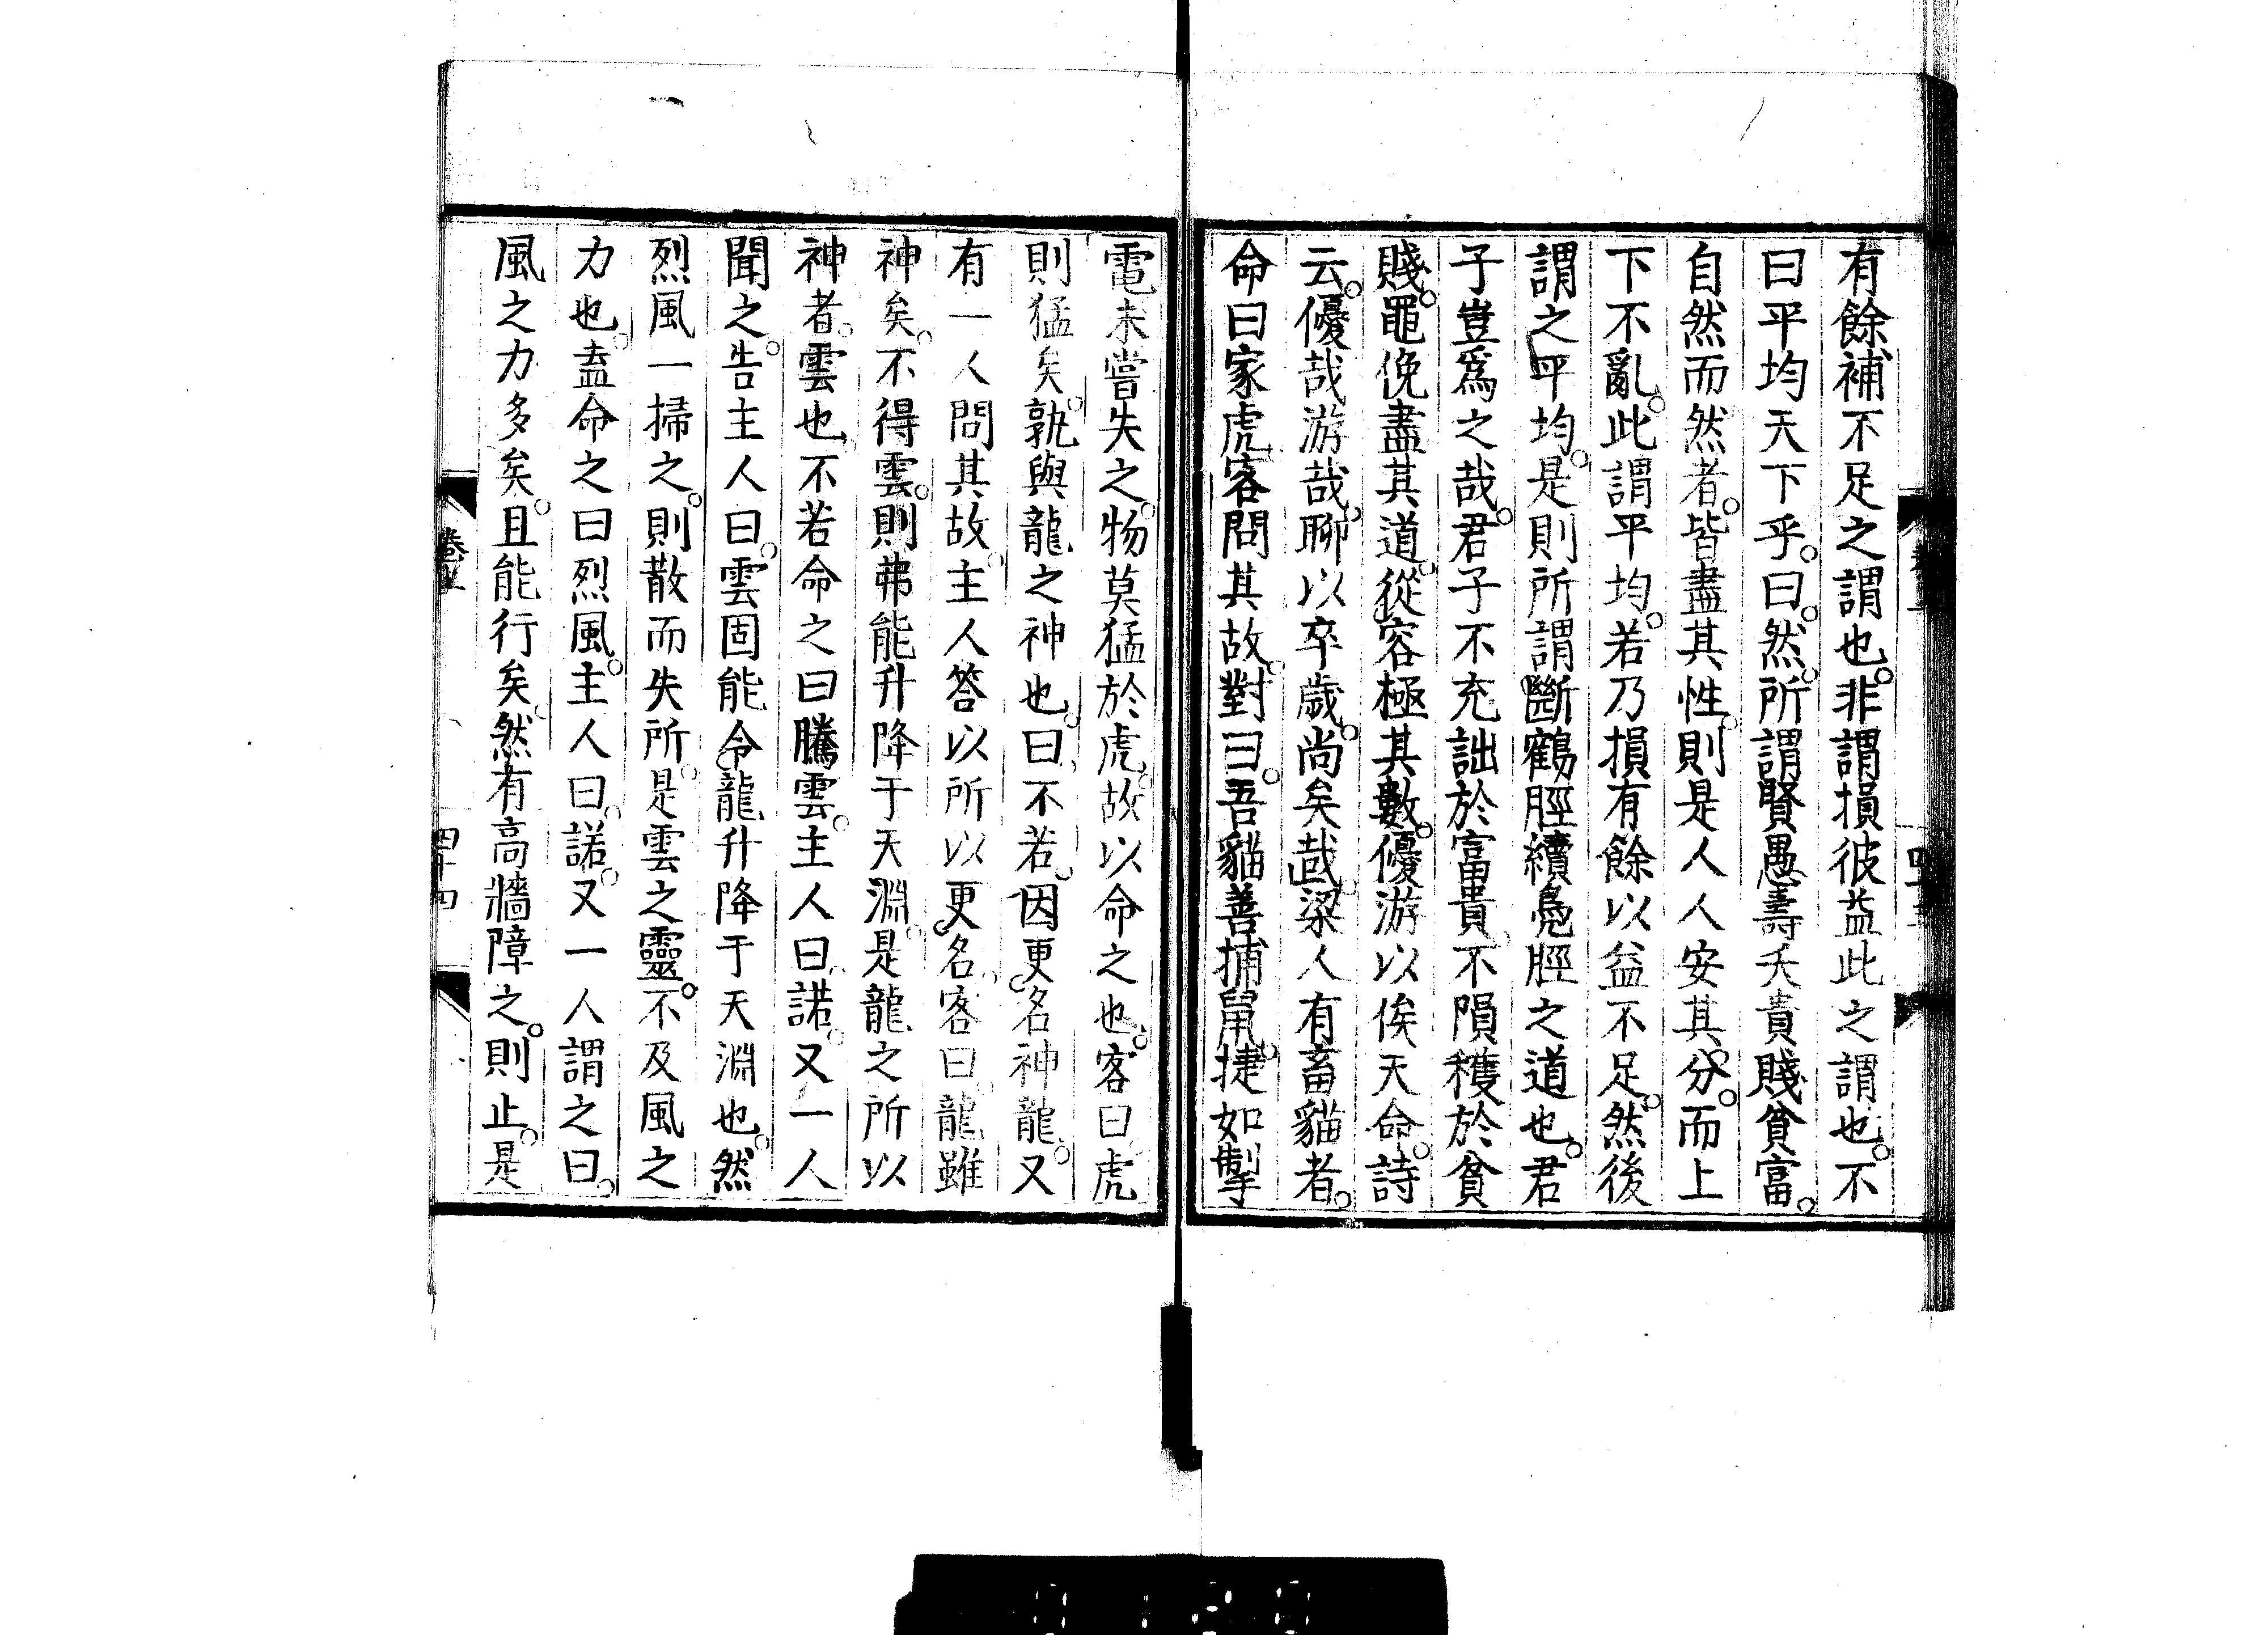 有餘補不足之謂也。非謂損彼益此之謂也。不
曰平均天下乎。曰。然。所謂賢愚壽夭貴賤貧富。
自然而然者。皆盡其性。則是人人安其分。而上
下不亂。此謂平均。若乃損有餘以益不足。然後
謂之平均。是則所謂斷鶴脛續鳧脛之道也。君
子豈爲之哉。君子不充詘於富貴。不隕穫於貧
賤。黽俛盡其道。從容極其數。優游以俟天命。詩
云。優哉游哉。聊以卒歲。尚矣哉。梁人有畜貓者。
命曰家虎。客問其故。對曰。吾貓善捕鼠。捷如掣
電。未嘗失之。物莫猛於虎。故以命之也。客曰。虎
則猛矣。孰與龍之神也。曰。不若。因更名神龍。又
有一人問其故。主人答以所以更名。客曰。龍雖
神矣。不得雲。則弗能升降于天淵。是龍之所以
神者。雲也。不若命之曰騰雲。主人曰。諾。又一人
聞之。告主人曰。雲固能令龍升降于天淵也。然
烈風一掃之。則散而失所。是雲之靈。不及風之
力也。盍命之曰烈風。主人曰。諾。又一人謂之曰。
風之力多矣。且能行矣。然有高牆障之。則止。是
卷五
四十四